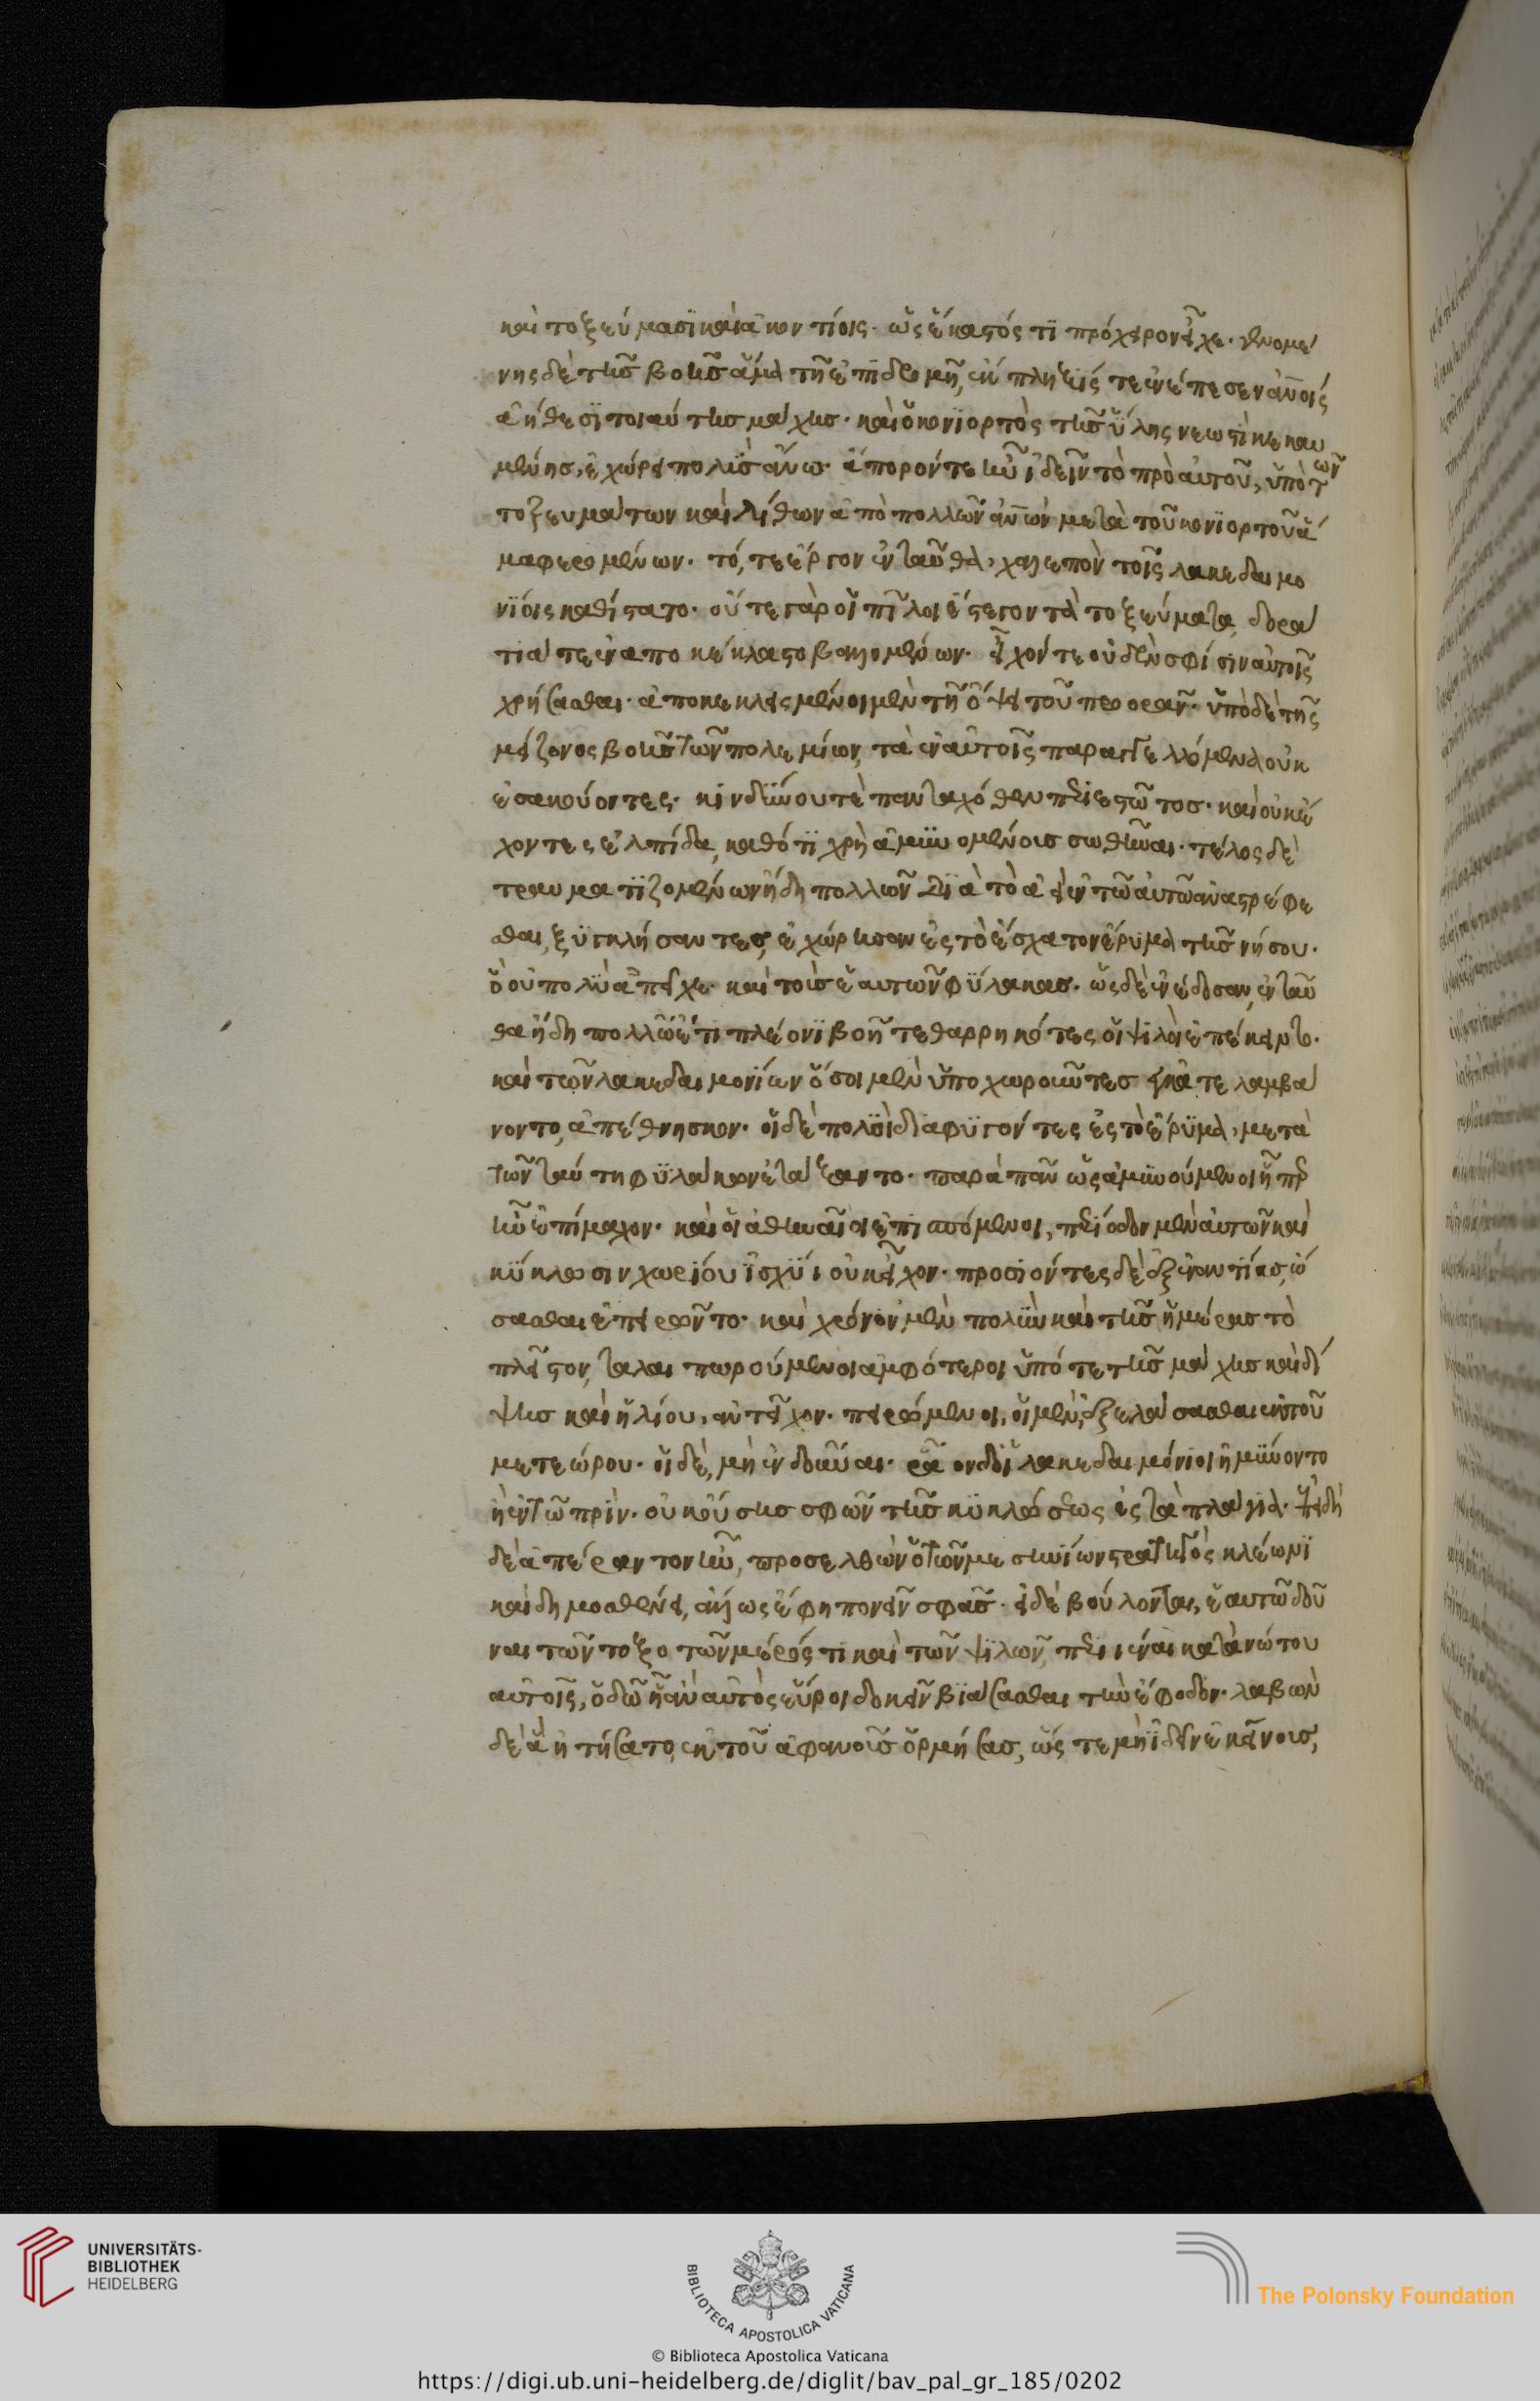 καὶ τοξεύμασϊ καὶ ἀκοντίοις· ὡς ἕκαστός τϊ πρόχειρον εἶχε· γενομέ
νης δὲ τῆς βοῆς ἅμα τῆ ἐπϊδρομῆ, ἔκπληξίς τε ἐνέπεσεν ἀνοις
ἀήθεσϊ τοιαύτης μάχης· καὶ ὁ κονϊορτὸς τῆς ὕλης νεωστὶ κεκαυ
μένης, ἐχώρει πολὺς ἄνω· ἄπορόν τε ἦν ἰδεῖν τὸ πρὸ αὐτοῦ, ὑπὸ τῶν
τοξευμάτων καὶ λίθων ἀπὸ πολλῶν ἀνων μετὰ τοῦ κονϊορτοῦ ἅ
μα φερομένων· τό, τε ἔργον ἐνταῦθα, χαλεπὸν τοῖς λακεδαιμο
νϊοις καθίστατο· οὔτε γὰρ οἱ πῖλοι ἔστεγον τὰ τοξεύματα, δορά
τιά τε ἐναποκέκλαστο βαλλομένων· εἶχόν τε οὐδὲν σφίσιν αὐτοῖς
χρήσασθαι· ἀποκεκλεισμένοι μὲν τῆ ὄψει τοῦ προορᾶν· ὑπὸ δὲ τῆς
μείζονος βοῆς τῶν πολεμίων, τὰ ἐν αὐτοῖς παραγγελλόμενα οὐκ
ἐσακούοντες· κινδύνου τὲ πανταχόθεν περιεστῶτος· καὶ οὐκ ἔ
χοντες ἐλπίδα, καθότϊ χρὴ ἀμυνομένοις σωθῆναι· τέλος δὲ
τραυματϊζομένων ἤδη πολλῶν δϊὰ τὸ ἀεὶ ἐν τῶ αὐτῶ ἀναστρέφε
σθαι, ξϋγκλήσαντες, ἐχώρησαν ἐς τὸ ἔσχατον ἔρυμα τῆς νήσου·
ὃ οὐ πολὺ ἀπεῖχε· καὶ τοὺς ἑαυτῶν φϋλακας· ὡς δὲ ἐνέδοσαν, ἐνταῦ
θα ἤδη πολλῶ ἔτι πλέονϊ βοῆ τεθαρρηκότες οἱ ψιλοὶ ἐπέκειντο·
καὶ τῶν λακεδαιμονίων ὅσοι μὲν ὑποχωροῦντες ἐγκατελαμβά
νοντο, ἀπέθνησκον· οἱ δὲ πολλοὶ διαφϋγόντες ἐς τὸ ἔρϋμα, μετὰ
τῶν ταύτη φϋλάκων ἐτάξαντο· παρὰ πᾶν ὡς ἀμυνούμενοι ἧπερ
ἦν ἐπίμαχον· καὶ οἱ ἀθηναῖοι ἐπϊσπόμενοι, περίοδον μὲν αὐτῶν καὶ
κϋκλωσιν χωρίου ἰσχϋϊ οὐκ εἶχον· προσιόντες δὲ ἐξ ἐναντίας, ὤ
σασθαι ἐπειρῶντο· καὶ χρόνον μὲν πολὺν καὶ τῆς ἡμέρας τὸ
πλεῖστον, ταλαιπωρούμενοι ἀμφότεροι ὑπό τε τῆς μάχης καὶ δί
ψης καὶ ἡλίου, ἀντεῖχον· πειρώμενοι, οἱ μὲν, ἐξελάσασθαι ἐκ τοῦ
μετεώρου· οἱ δὲ, μὴ ἐνδοῦναι· ρᾶον δ' οἱ λακεδαιμόνιοι ἠμύνοντο
ἢ ἐν τῶ πρὶν· οὐκ οὔσης σφῶν τῆς κϋκλώσεως ἐς τὰ πλάγϊα· ἐπειδὴ
δὲ ἀπέραντον ἦν, προσελθὼν ὁ τῶν μεσσηνίων στρατηγὸς κλέωνϊ
καὶ δημοσθένει, ἄλλως ἔφη πονεῖν σφᾶς· εἰ δὲ βούλονται, ἑαυτῶ δοῦ
ναι τῶν τοξοτῶν μέρός τι καὶ τῶν ψϊλῶν, περιϊέναι κατὰ νώτου
αὐτοῖς, ὁδῶ ἧ ἂν αὐτὸς εὕροι δοκεῖν βϊάσασθαι τὴν ἔφοδον· λαβὼν
δὲ ἃ ἠτήσατο, ἐκ τοῦ ἀφανοῦς ὁρμήσας, ὥστε μὴ ἰδεῖν ἐκείνους,
UNIVERSITÄTS-
BIBLIOTHEK
HEIDELBERG
BIBLIOTECA APOSTOLICA VATICANA
The Polonsky Foundation
© Biblioteca Apostolica Vaticana
https://digi.ub.uni-heidelberg.de/diglit/bav_pal_gr_185/0202